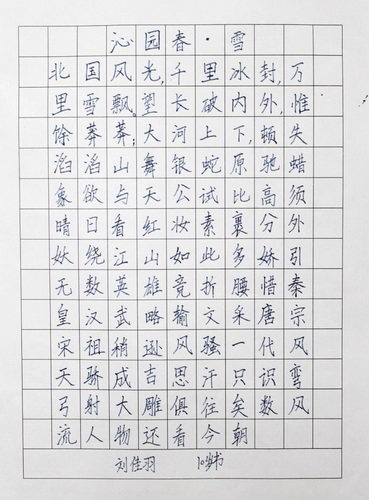 沁园春·雪
北国风光,千里冰封,万
里雪飘。望长破内外,惟
馀莽莽;大河上下,顿失
滔滔山舞银蛇原驰蜡
象欲与天公试比高须
晴日看红妆素裹分外
妖绕江山如此多娇引
无数英雄竞折腰惜秦
皇汉武略输文采唐宗
宋祖稍逊风骚一代风
天骄成吉思汗只识弯
弓射大雕俱往矣数风
流人物还看今朝
刘佳羽 10岁书